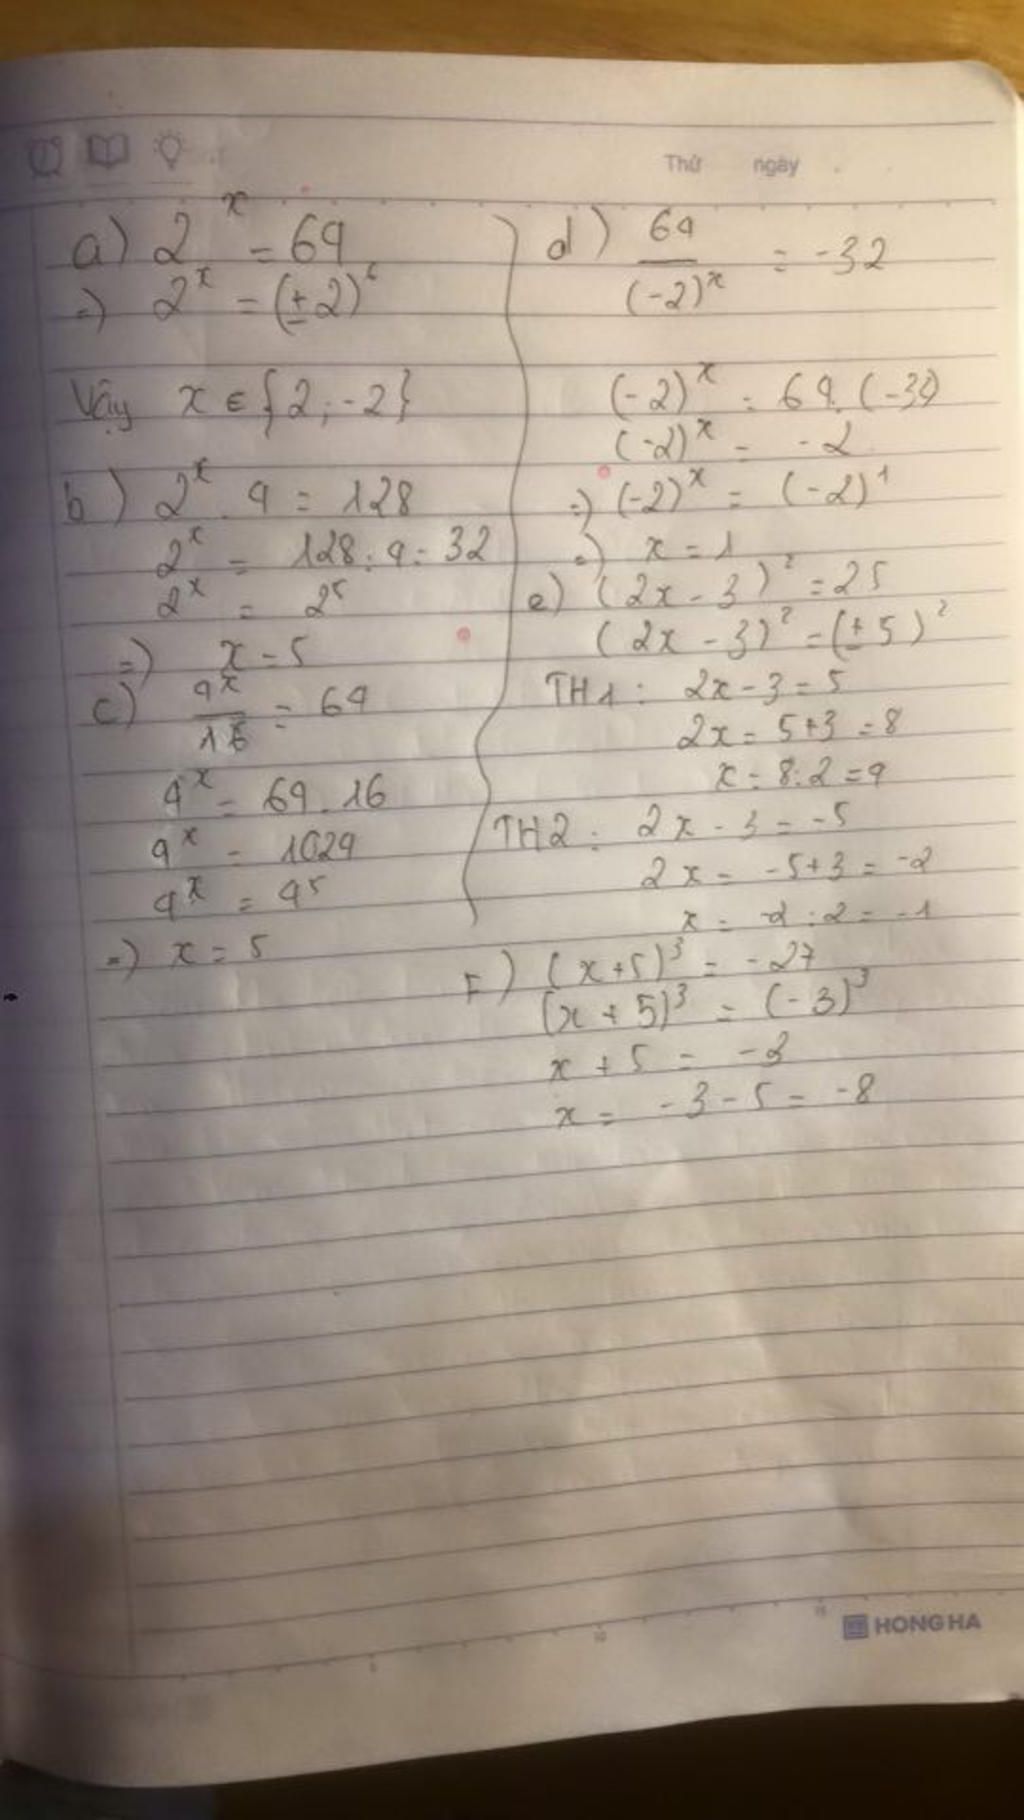 Thứ ngày
a) 2^x = 64
=) 2^x = (±2)^6
Vậy x ∈ {2; -2}
b) 2^x . 4 = 128
2^x = 128 : 4 = 32
2^x = 2^5
=) x = 5
c) 4^x/16 = 64
4^x = 64 . 16
4^x = 1024
4^x = 4^5
=) x = 5
d) 64/(-2)^x = -32
(-2)^x = 64 : (-32)
(-2)^x = -2
=) (-2)^x = (-2)^1
=) x = 1
e) (2x - 3)^2 = 25
(2x - 3)^2 = (±5)^2
TH1: 2x - 3 = 5
2x = 5+3 = 8
x = 8:2 = 4
TH2: 2x - 3 = -5
2x = -5+3 = -2
x = -2 : 2 = -1
F) (x+5)^3 = -27
(x + 5)^3 = (-3)^3
x + 5 = -3
x = -3 - 5 = -8
5 10 15
HONG HA